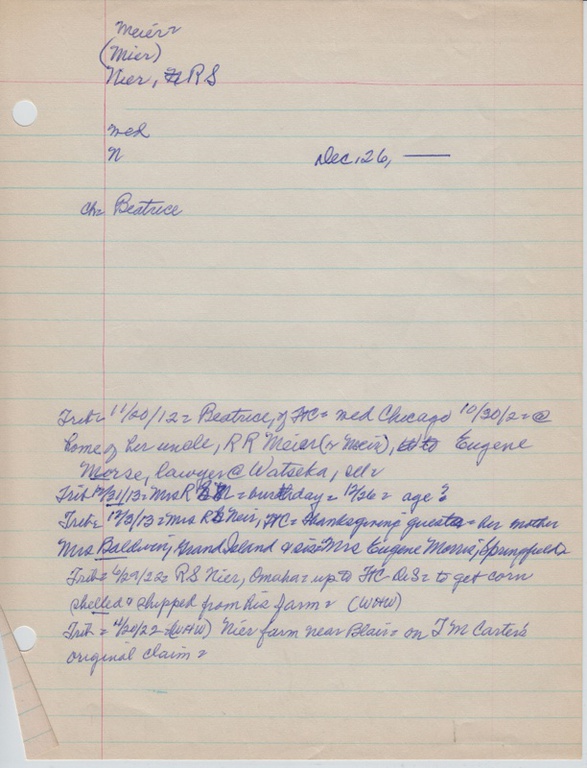 Meier
(Mier)
Nier, RS
wed
N Dec, 26, —
ch= Beatrice
Trib= 11/20/12= Beatrice, of FtC= wed Chicago 10/30/2= @
home of her uncle, RR Meier (or Meir), Eugene
Morse, lawyer @ Watseka, Ill=
Trib 12/31/13= Mrs R N= birthday= 12/26= age?
Trib= 12/3/13= Mrs RS Neir, FtC= Thanksgiving guests= her mother
Mrs Baldwin, Grand Island & sis= Mrs Eugene Morris, Springfield=
Trib= 6/29/22= RS Nier, Omaha= up to FtC to get corn
shelled & shipped from his farm= (WOW)
Trib= 4/20/22= (WOW) Nier farm near Blair= on TM Carter's
original claim=